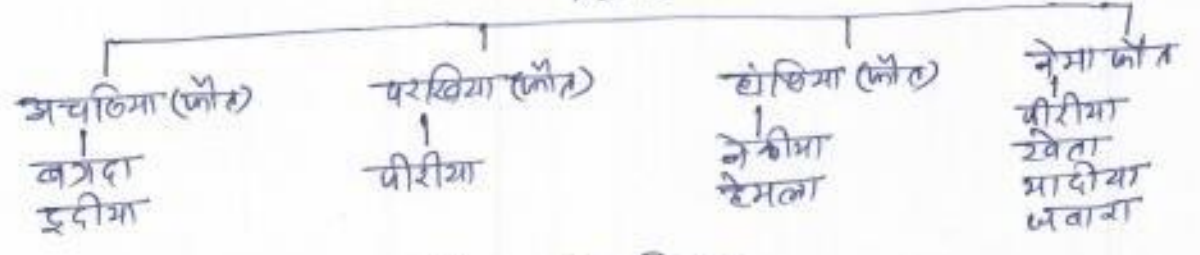 अचळिया (फौत)
बगदा
इदीया
परखिया (फौत)
पीरीया
हांळिया (फौत)
नेकीया
हेमला
नेमा फौत
पीरीया
खेता
भादीया
जवारा